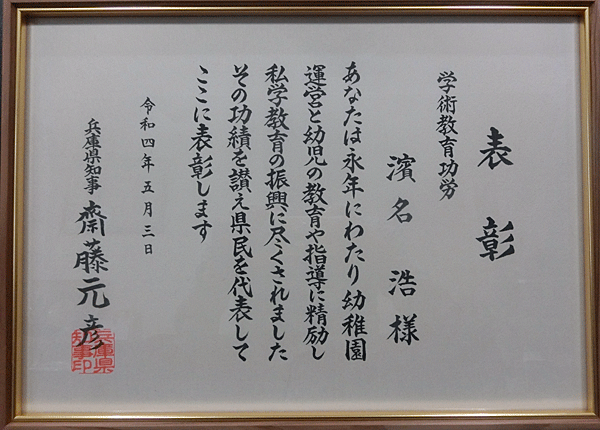 表彰
学術教育功労
濱名 浩 様
あなたは永年にわたり幼稚園
運営と幼児の教育や指導に精励し
私学教育の振興に尽くされました
その功績を讃え県民を代表して
ここに表彰します
令和四年五月三日
兵庫県知事 齋藤元彦
兵庫県
知事印